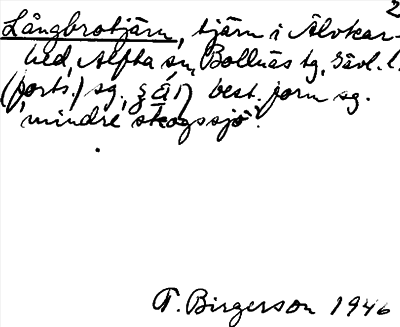 2
Långbrotjärn, tjärn i Älvkar-
hed, Alfta sn, Bollnäs tg, Gävl. l.
(forts.) sg. best. form sg.
'mindre skogssjö'.
T. Birgerson 1946